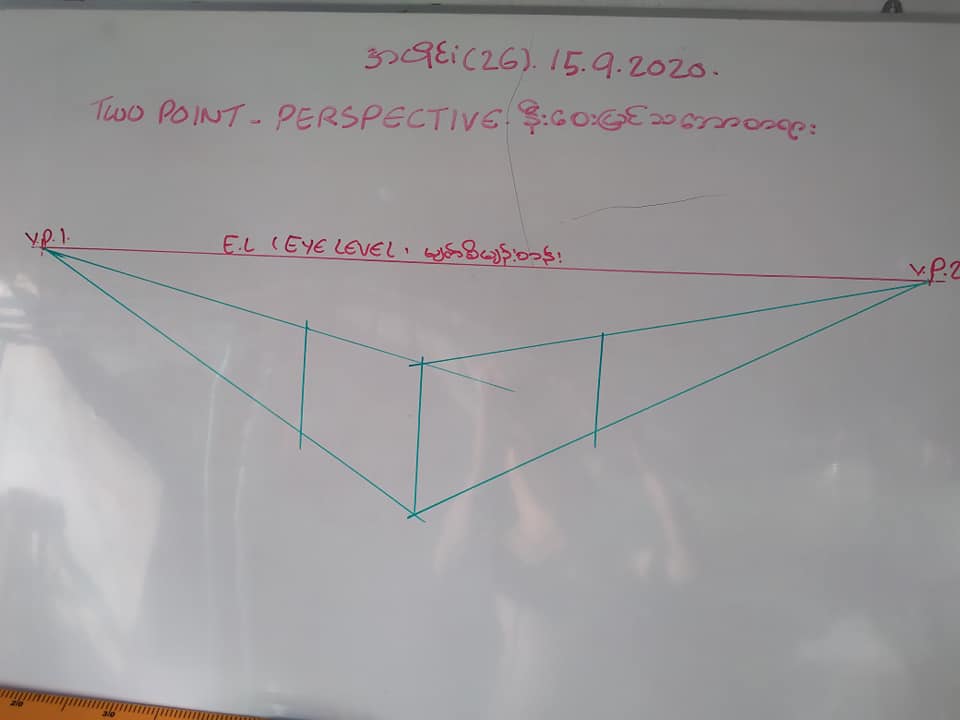 အပိုင်း(26). 15.9.2020.
TWO POINT - PERSPECTIVE. နီးဝေးမြင်သဘောတရား
V.P.1.
E.L (EYE LEVEL, မျက်စိမျဉ်းတန်း
V.P.2
210
310